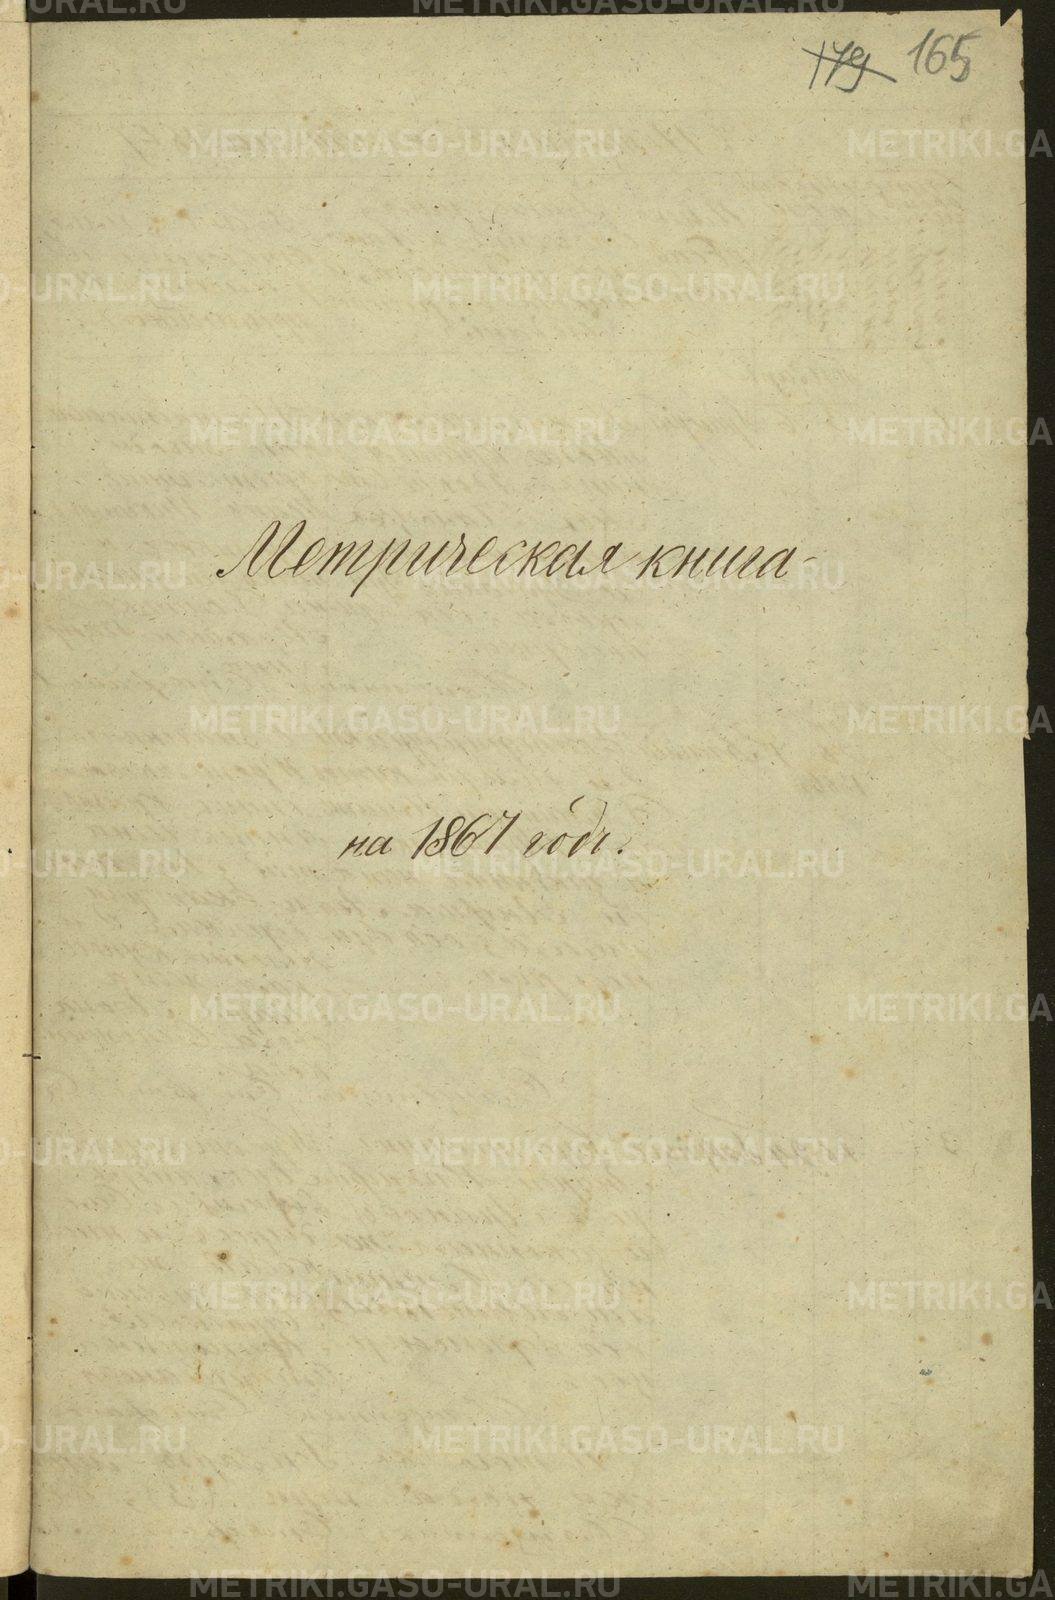 179 165
Метрическая книга
на 1867 годъ.
METRIKI.GASO-URAL.RU